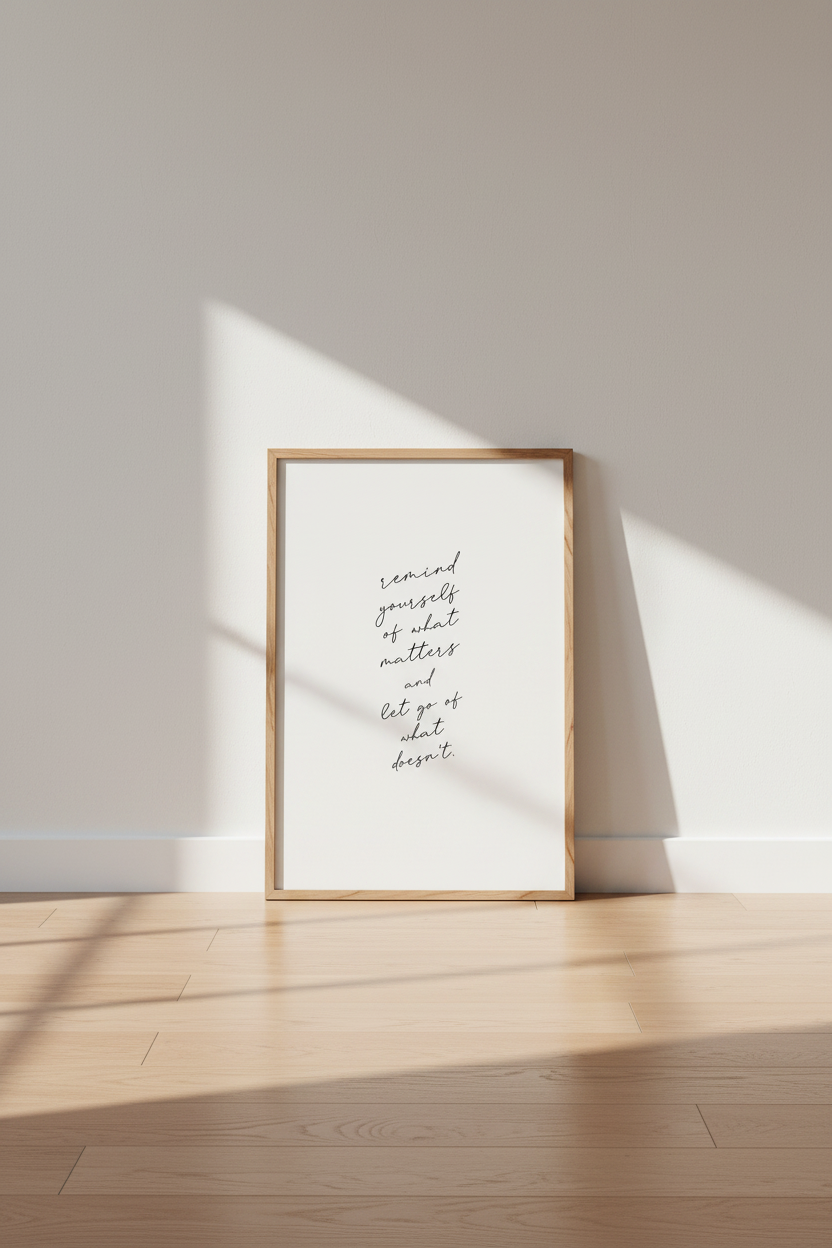 remind
yourself
of what
matters
and
let go of
what
doesn't.